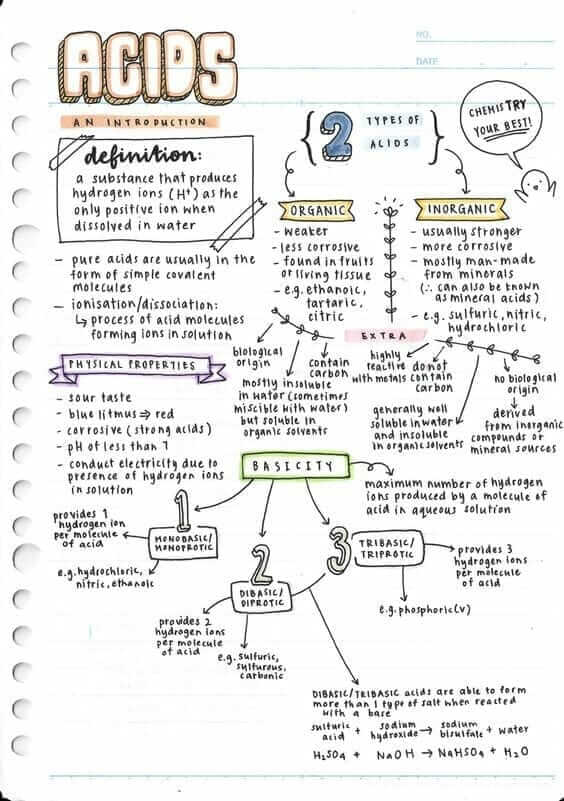 NO.
DATE
ACIDS
AN INTRODUCTION
definition:
a substance that produces
hydrogen ions (H⁺) as the
only positive ion when
dissolved in water
- pure acids are usually in the
form of simple covalent
molecules
- ionisation/dissociation:
↳ process of acid molecules
forming ions in solution
PHYSICAL PROPERTIES
- sour taste
- blue litmus ⇒ red
- corrosive (strong acids)
- pH of less than 7
- conduct electricity due to
presence of hydrogen ions
in solution
2 TYPES OF
ACIDS
CHEMISTRY
YOUR BEST!
ORGANIC
- weaker
- less corrosive
- found in fruits
or living tissue
- e.g. ethanoic,
tartaric,
citric
INORGANIC
- usually stronger
- more corrosive
- mostly man-made
from minerals
(∴ can also be known
as mineral acids)
- e.g. sulfuric, nitric,
hydrochloric
EXTRA
biological
origin
mostly insoluble
in water (sometimes
miscible with water)
but soluble in
organic solvents
contain
carbon
highly
reactive
with metals
do not
contain
carbon
generally well
soluble in water
and insoluble
in organic solvents
no biological
origin
derived
from inorganic
compounds or
mineral sources
BASICITY
maximum number of hydrogen
ions produced by a molecule of
acid in aqueous solution
1
MONOBASIC/
MONOPROTIC
provides 1
hydrogen ion
per molecule
of acid
e.g. hydrochloric,
nitric, ethanoic
2
DIBASIC/
DIPROTIC
provides 2
hydrogen ions
per molecule
of acid
e.g. sulfuric,
sulfurous,
carbonic
3
TRIBASIC/
TRIPROTIC
provides 3
hydrogen ions
per molecule
of acid
e.g. phosphoric(v)
DIBASIC/TRIBASIC acids are able to form
more than 1 type of salt when reacted
with a base
sulfuric acid + sodium hydroxide → sodium bisulfate + water
H₂SO₄ + NaOH → NaHSO₄ + H₂O